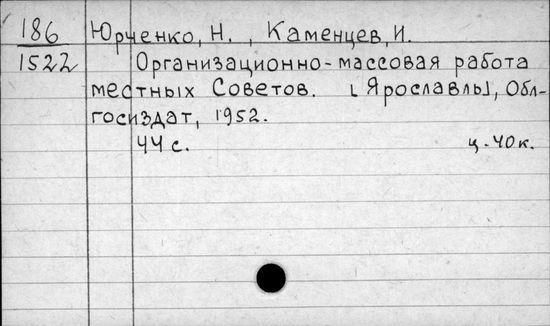 186 Юрченко, Н. , Каменцев, И.
1522 Организационно-массовая работа
местных Советов. [Ярославль], Обл-
госиздат, 1952.
44 с. ц. 40 к.